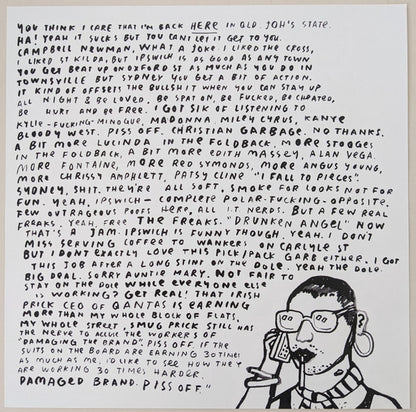 YOU THINK I CARE THAT I'M BACK HERE IN QLD. JOH'S STATE.
HA! YEAH IT SUCKS BUT YOU CAN'T LET IT GET TO YOU.
CAMPBELL NEWMAN, WHAT A JOKE I LIKED THE CROSS,
I LIKED ST KILDA, BUT IPSWICH IS AS GOOD AS ANY TOWN
YOU GET BEAT UP ON OXFORD ST AS MUCH AS YOU DO IN
TOWNSVILLE BUT SYDNEY YOU GET A BIT OF ACTION.
IT KIND OF OFFSETS THE BULLSHIT WHEN YOU CAN STAY UP
ALL NIGHT & BE LOVED, BE SPAT ON, BE FUCKED, BE CHEATED,
BE HURT AND BE FREE. I GOT SIK OF LISTENING TO
KYLIE-FUCKING-MINOGUE, MADONNA, MILEY CYRUS, KANYE
BLOODY WEST. PISS OFF. CHRISTIAN GARBAGE. NO THANKS.
A BIT MORE LUCINDA IN THE FOLDBACK, MORE STOOGES
IN THE FOLDBACK, A BIT MORE EDITH MASSEY, ALAN VEGA.
MORE FONTAINE, MORE RED SYMONDS, MORE ANGUS YOUNG,
MORE CHRISSY AMPHLETT, PATSY CLINE "I FALL TO PIECES".
SYDNEY, SHIT. THEY'RE ALL SOFT, SMOKE FOR LOOKS NOT FOR
FUN. YEAH, IPSWICH - COMPLETE POLAR-FUCKING-OPPOSITE.
FEW OUTRAGEOUS POOFS HERE, ALL IT NERDS. BUT A FEW REAL
FREAKS. YEAH, FREE THE FREAKS. "DRUNKEN ANGEL" NOW
THAT'S A JAM. IPSWICH IS FUNNY THOUGH. YEAH. I DON'T
MISS SERVING COFFEE TO WANKERS ON CARLYLE ST
BUT I DONT EXACTLY LOVE THIS PICK/PACK GARB EITHER. I GOT
THIS JOB AFTER A LONG STINT ON THE DOLE. YEAH THE DOLE.
BIG DEAL. SORRY AUNTIE MARY. NOT FAIR TO
STAY ON THE DOLE WHILE EVERYONE ELSE
IS WORKING? GET REAL! THAT IRISH
PRICK CEO OF QANTAS IS EARNING
MORE THAN MY WHOLE BLOCK OF FLATS,
MY WHOLE STREET, SMUG PRICK STILL HAS
THE NERVE TO ACCUSE THE WORKERS OF
"DAMAGING THE BRAND". PISS OFF. IF THE
SUITS ON THE BOARD ARE EARNING 30 TIMES
AS MUCH AS ME, I'D LIKE TO SEE HOW THEY
ARE WORKING 30 TIMES HARDER.
DAMAGED BRAND. PISS OFF."